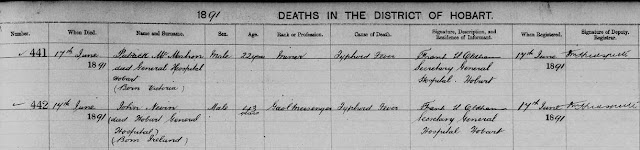 1891 DEATHS IN THE DISTRICT OF HOBART.
Number. When Died. Name and Surname. Sex. Age. Rank or Profession. Cause of Death. Signature, Description, and Residence of Informant. When Registered. Signature of Deputy Registrar.
441 17th June 1891 Patrick McMahon Male 22 years Miner Typhoid Fever Frank 17th June
died General Hospital Secretary General 1891
Hobart Hospital. Hobart
(Born Victoria)
442 17th June 1891 John Nevin Male 43 years Gaol Messenger Typhoid Fever Frank 17th June
died Hobart General Secretary General 1891
Hospital) Hospital Hobart
(Born Ireland)